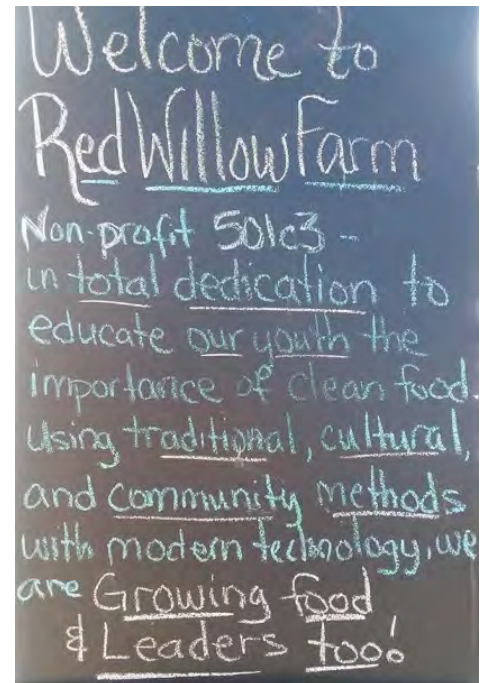 Welcome to
Red Willow Farm
Non-profit 501c3 -
in total dedication to
educate our youth the
importance of clean food.
Using traditional, cultural,
and community methods
with modern technology, we
are Growing food
& Leaders too!